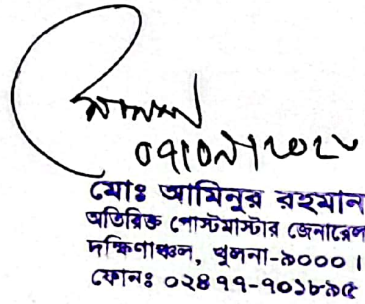 মোঃ আমিনুর রহমান
অতিরিক্ত পোস্টমাস্টার জেনারেল
দক্ষিণাঞ্চল, খুলনা-৯০০০।
ফোনঃ ০২৪৭৭-৭০১৮৯৫